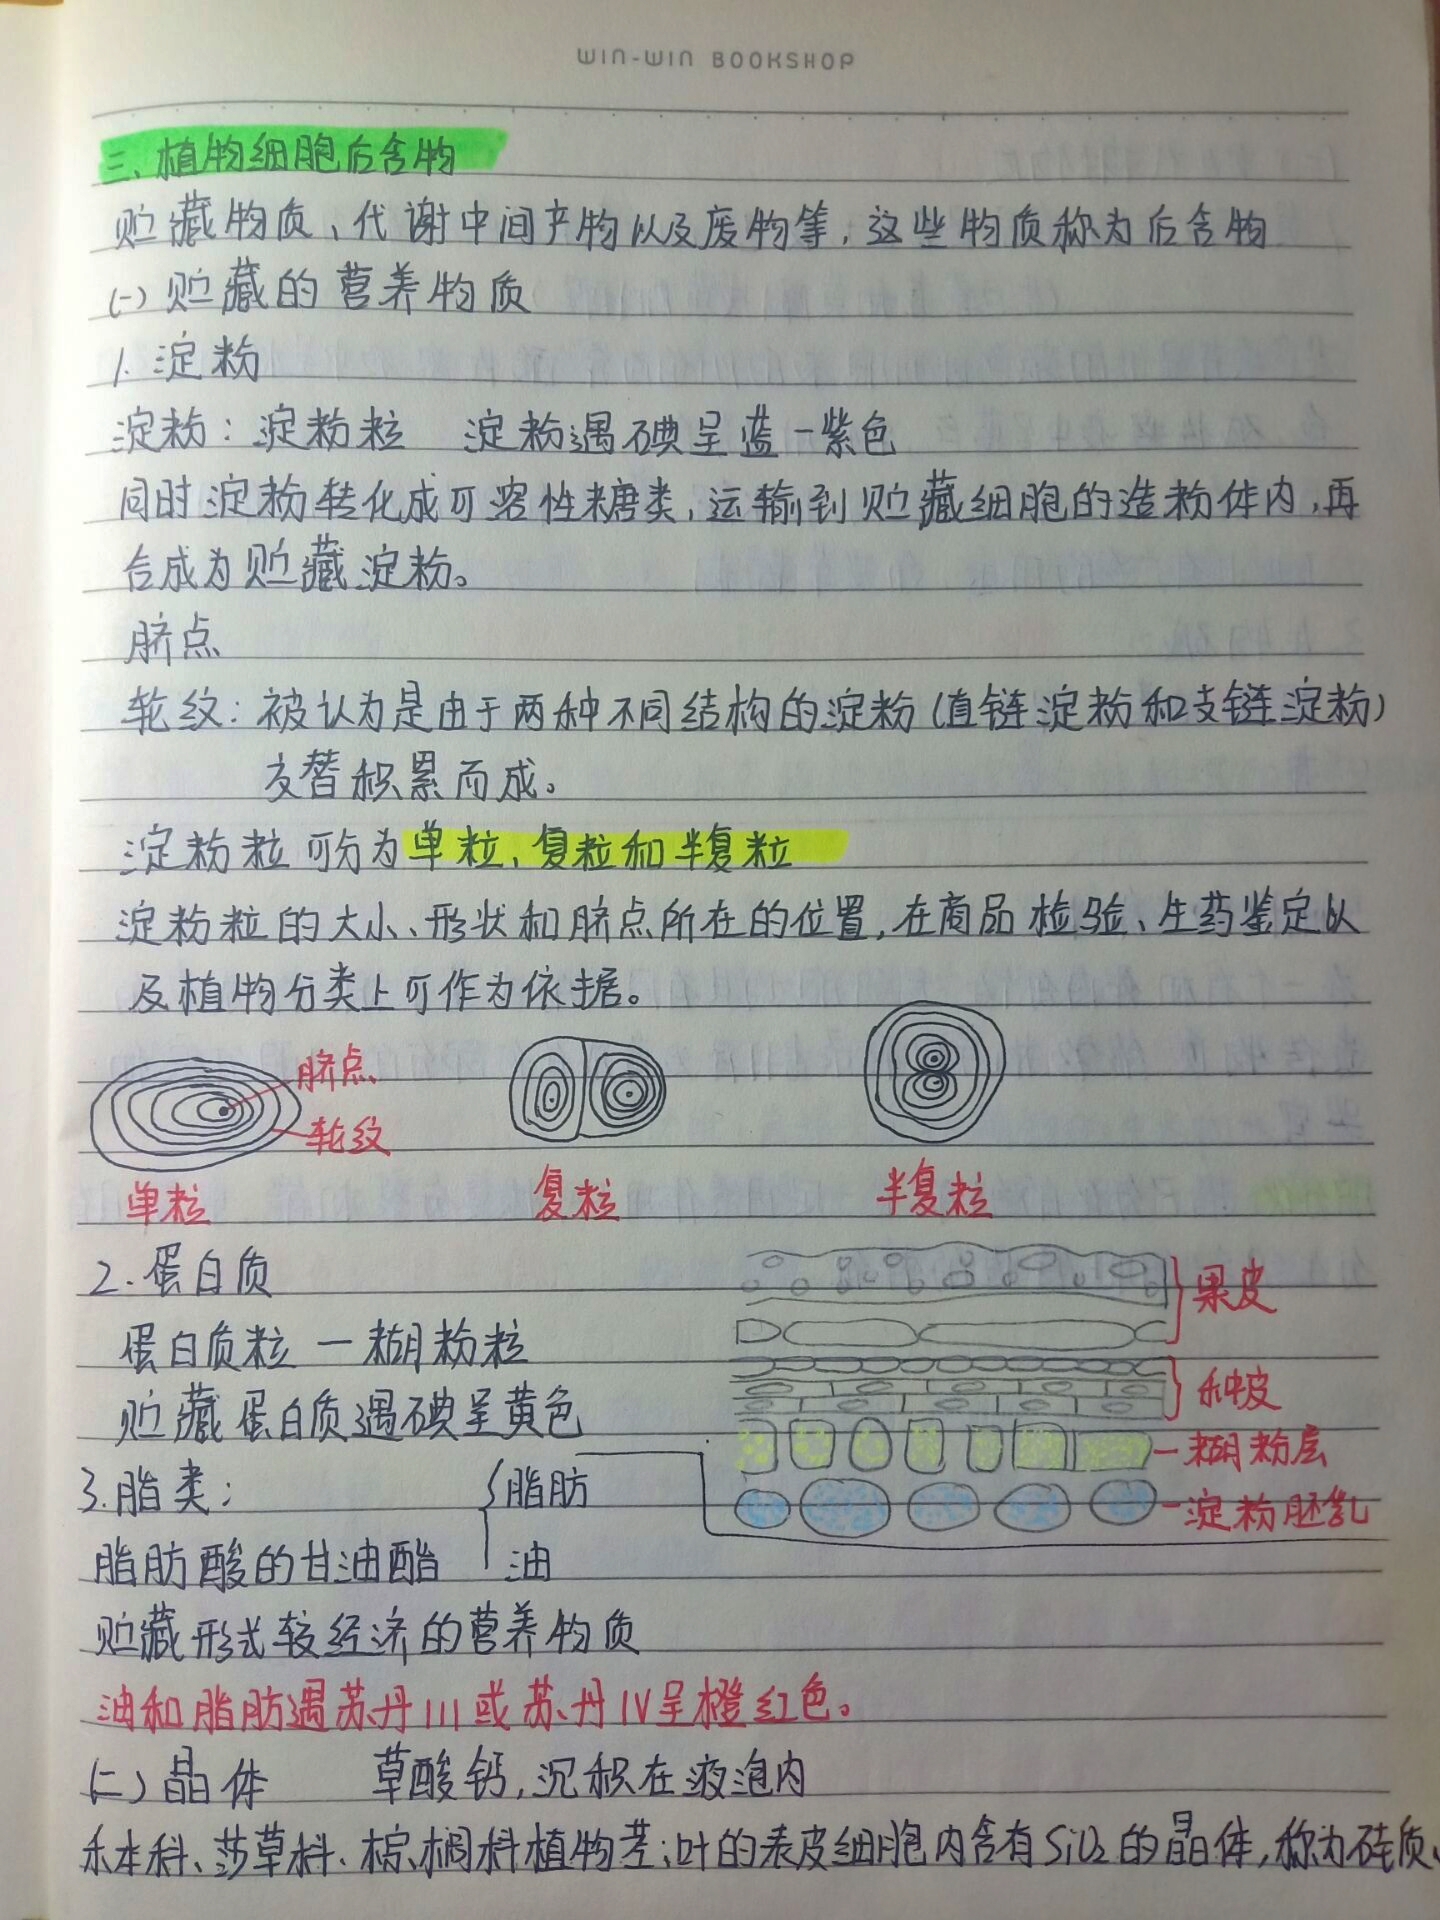 WIN-WIN BOOKSHOP
三、植物细胞后含物
贮藏物质、代谢中间产物以及废物等，这些物质称为后含物
(一)贮藏的营养物质
1. 淀粉
淀粉：淀粉粒 淀粉遇碘呈蓝-紫色
同时淀粉转化成可溶性糖类，运输到贮藏细胞的造粉体内，再
合成为贮藏淀粉。
脐点
轮纹：被认为是由于两种不同结构的淀粉(直链淀粉和支链淀粉)
交替积累而成。
淀粉粒可分为单粒、复粒和半复粒
淀粉粒的大小、形状和脐点所在的位置，在商品检验、生药鉴定以
及植物分类上可作为依据。
脐点
轮纹
单粒 复粒 半复粒
2. 蛋白质
果皮
蛋白质粒 — 糊粉粒
种皮
贮藏蛋白质遇碘呈黄色
糊粉层
3. 脂类： 脂肪
淀粉胚乳
脂肪酸的甘油酯 油
贮藏形式较经济的营养物质
油和脂肪遇苏丹III或苏丹IV呈橙红色。
(二)晶体 草酸钙，沉积在液泡内
禾本科、莎草科、棕榈科植物茎；叶的表皮细胞内含有SiO2的晶体，称为硅质、